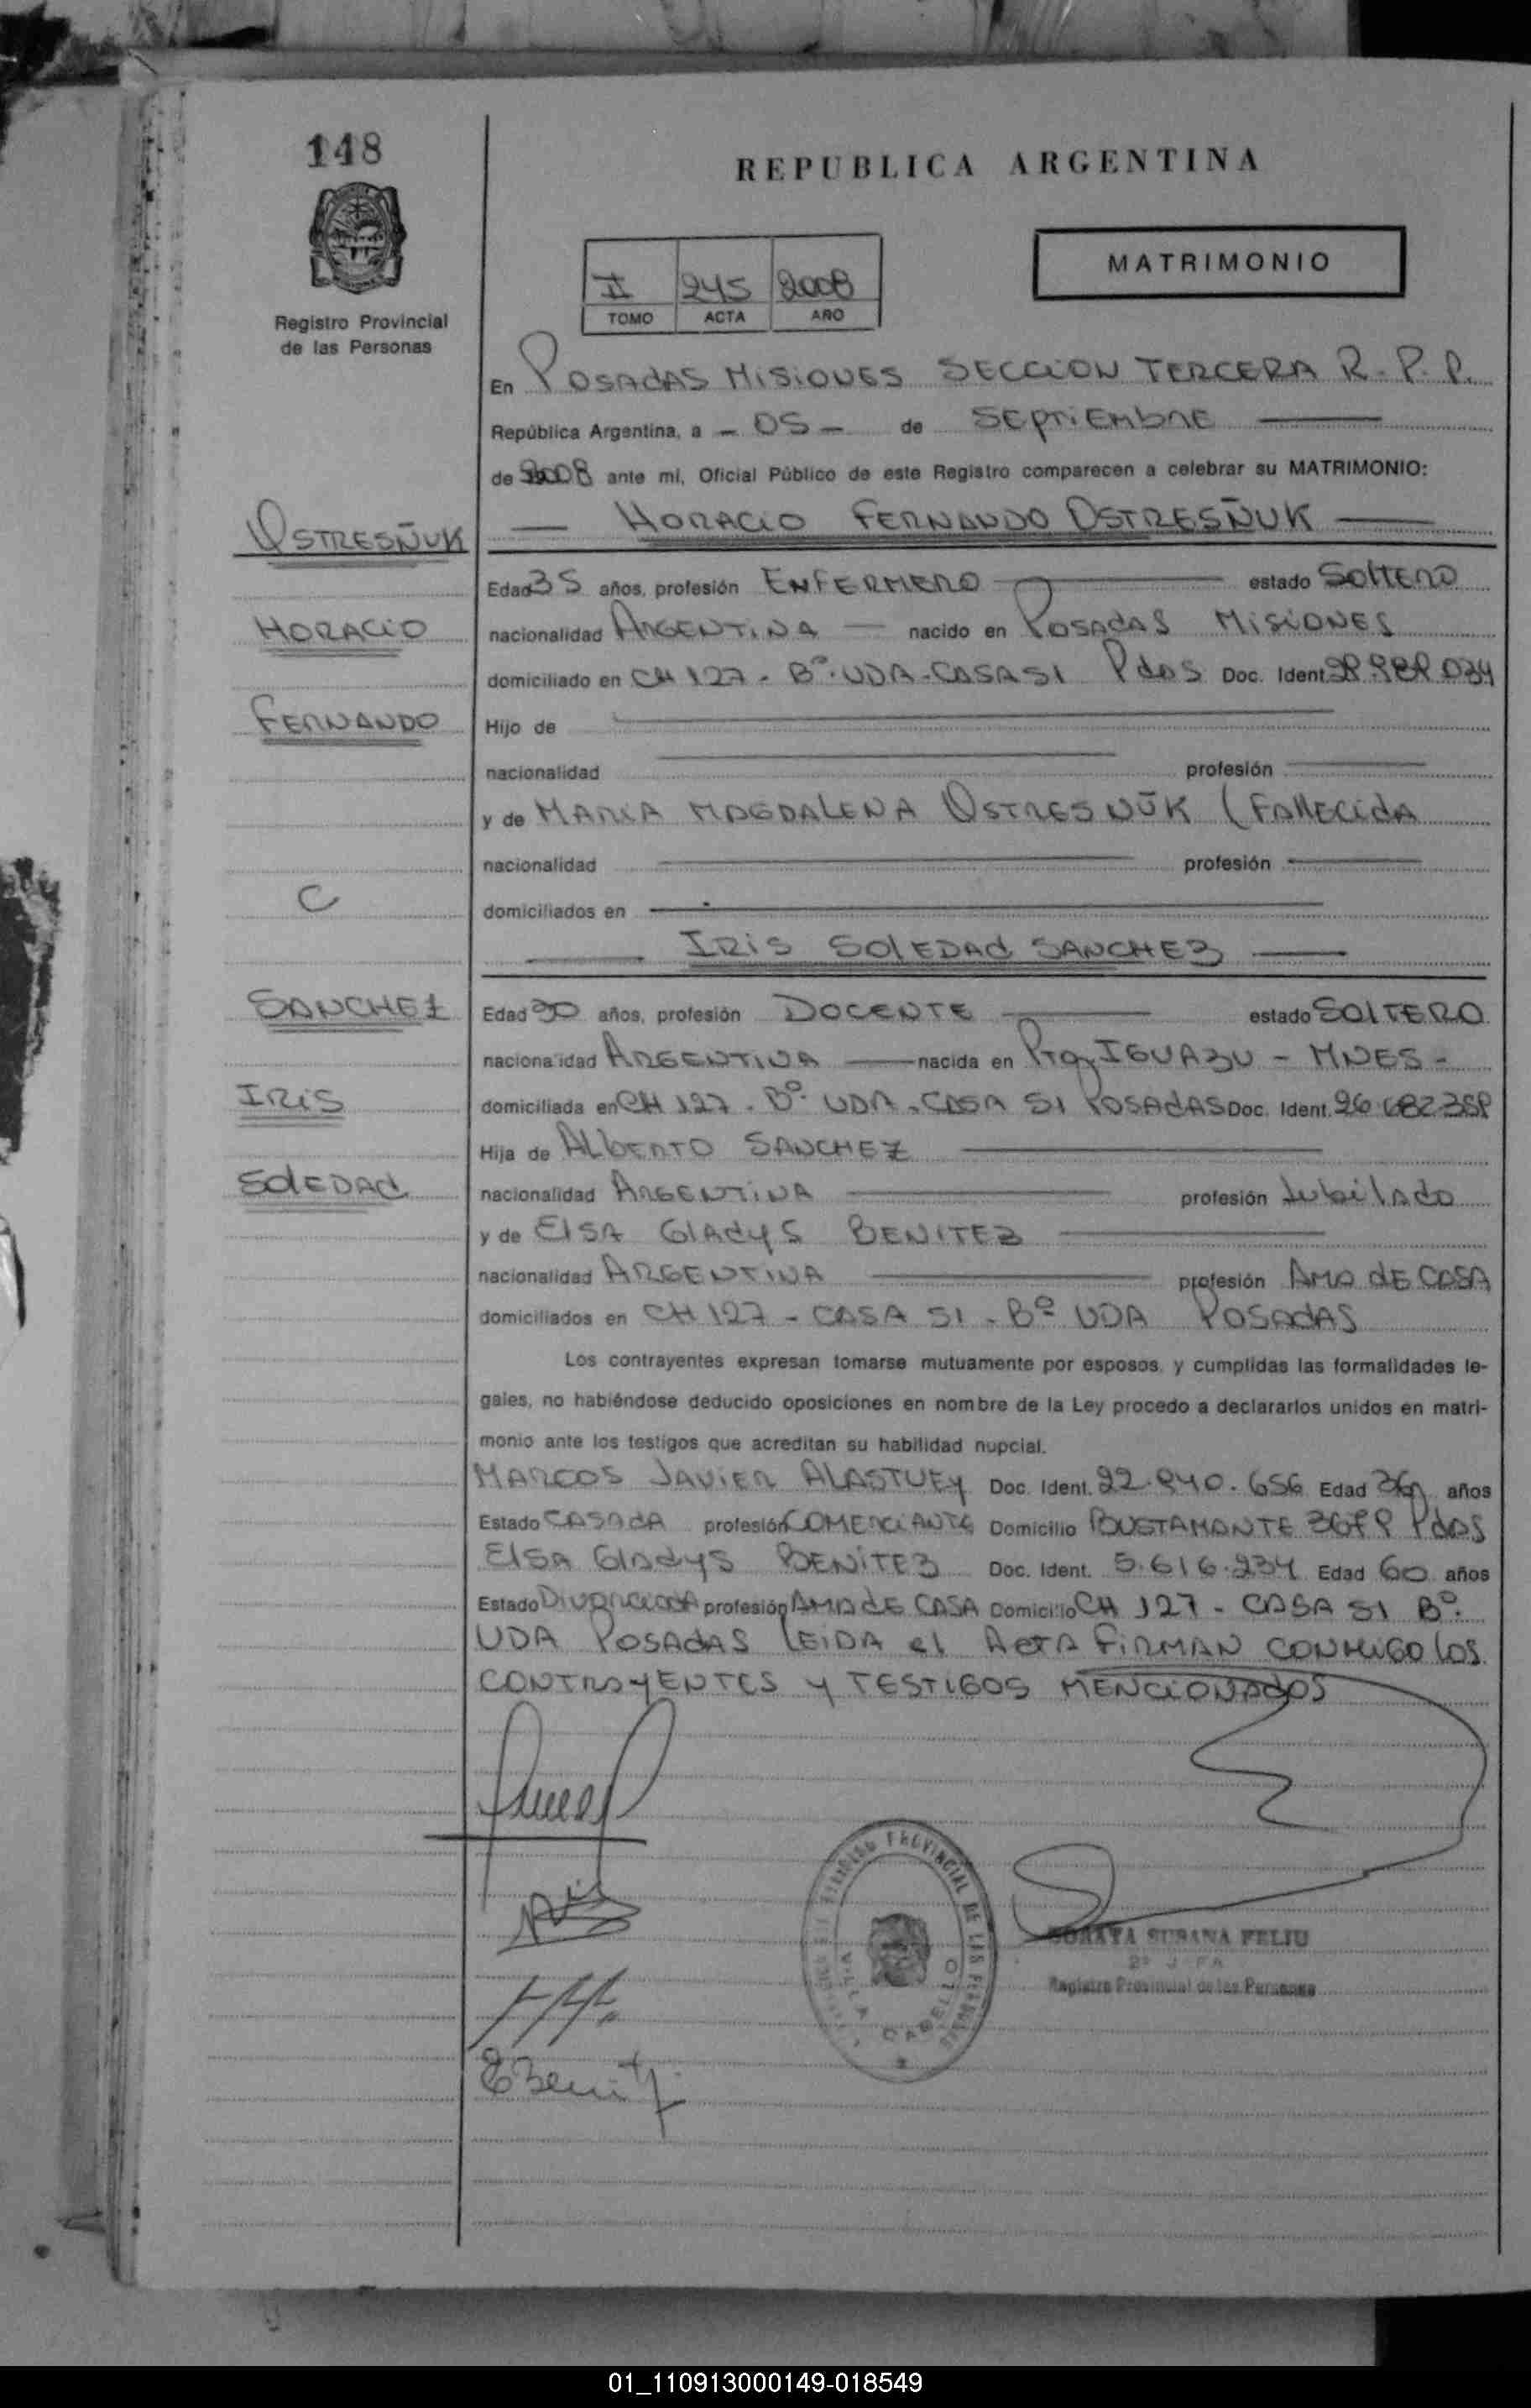 148
REPUBLICA ARGENTINA
Registro Provincial
de las Personas
II 245 2008
TOMO ACTA AÑO
MATRIMONIO
En POSADAS MISIONES SECCION TERCERA R.P.P.
República Argentina, a - 05 - de SEPTIEMBRE
de 2008 ante mi, Oficial Público de este Registro comparecen a celebrar su MATRIMONIO:
OSTRESÑUK
HORACIO FERNANDO OSTRESÑUK
Edad 35 años, profesión ENFERMERO estado SOLTERO
HORACIO
nacionalidad ARGENTINA nacido en POSADAS MISIONES
domiciliado en CH 127 - Bº. UDA - CASA 51 Pdas Doc. Ident.
FERNANDO
Hijo de
nacionalidad profesión
y de MARIA MAGDALENA OSTRESÑUK (FALLECIDA
nacionalidad profesión
C
domiciliados en
IRIS SOLEDAD SANCHEZ
SANCHEZ
Edad 30 años, profesión DOCENTE estado SOLTERO
nacionalidad ARGENTINA nacida en Pto. IGUAZU - MNES -
IRIS
domiciliada en CH 127 - Bº. UDA - CASA 51 POSADAS Doc. Ident.
Hija de ALBERTO SANCHEZ
SOLEDAD
nacionalidad ARGENTINA profesión Jubilado
y de ELSA GLADYS BENITEZ
nacionalidad ARGENTINA profesión AMA DE CASA
domiciliados en CH 127 - CASA 51 - Bº UDA POSADAS
Los contrayentes expresan tomarse mutuamente por esposos, y cumplidas las formalidades le-
gales, no habiéndose deducido oposiciones en nombre de la Ley procedo a declararlos unidos en matri-
monio ante los testigos que acreditan su habilidad nupcial.
MARCOS JAVIER ALASTUEY Doc. Ident. 22.940.656 Edad 36 años
Estado CASADA profesión COMERCIANTE Domicilio BUSTAMANTE Pdas
ELSA GLADYS BENITEZ Doc. Ident. 5.616.234 Edad 60 años
Estado DIVORCIADA profesión AMA DE CASA Domicilio CH 127 - CASA 51 Bº.
UDA POSADAS LEIDA el ACTA FIRMAN CONMIGO LOS
CONTRAYENTES Y TESTIGOS MENCIONADOS
REGISTRO PROVINCIAL DE LAS PERSONAS
VILLA CABELLO
SORAYA SUSANA FELIU
Registro Provincial de las Personas
E Benitz
01_110913000149-018549